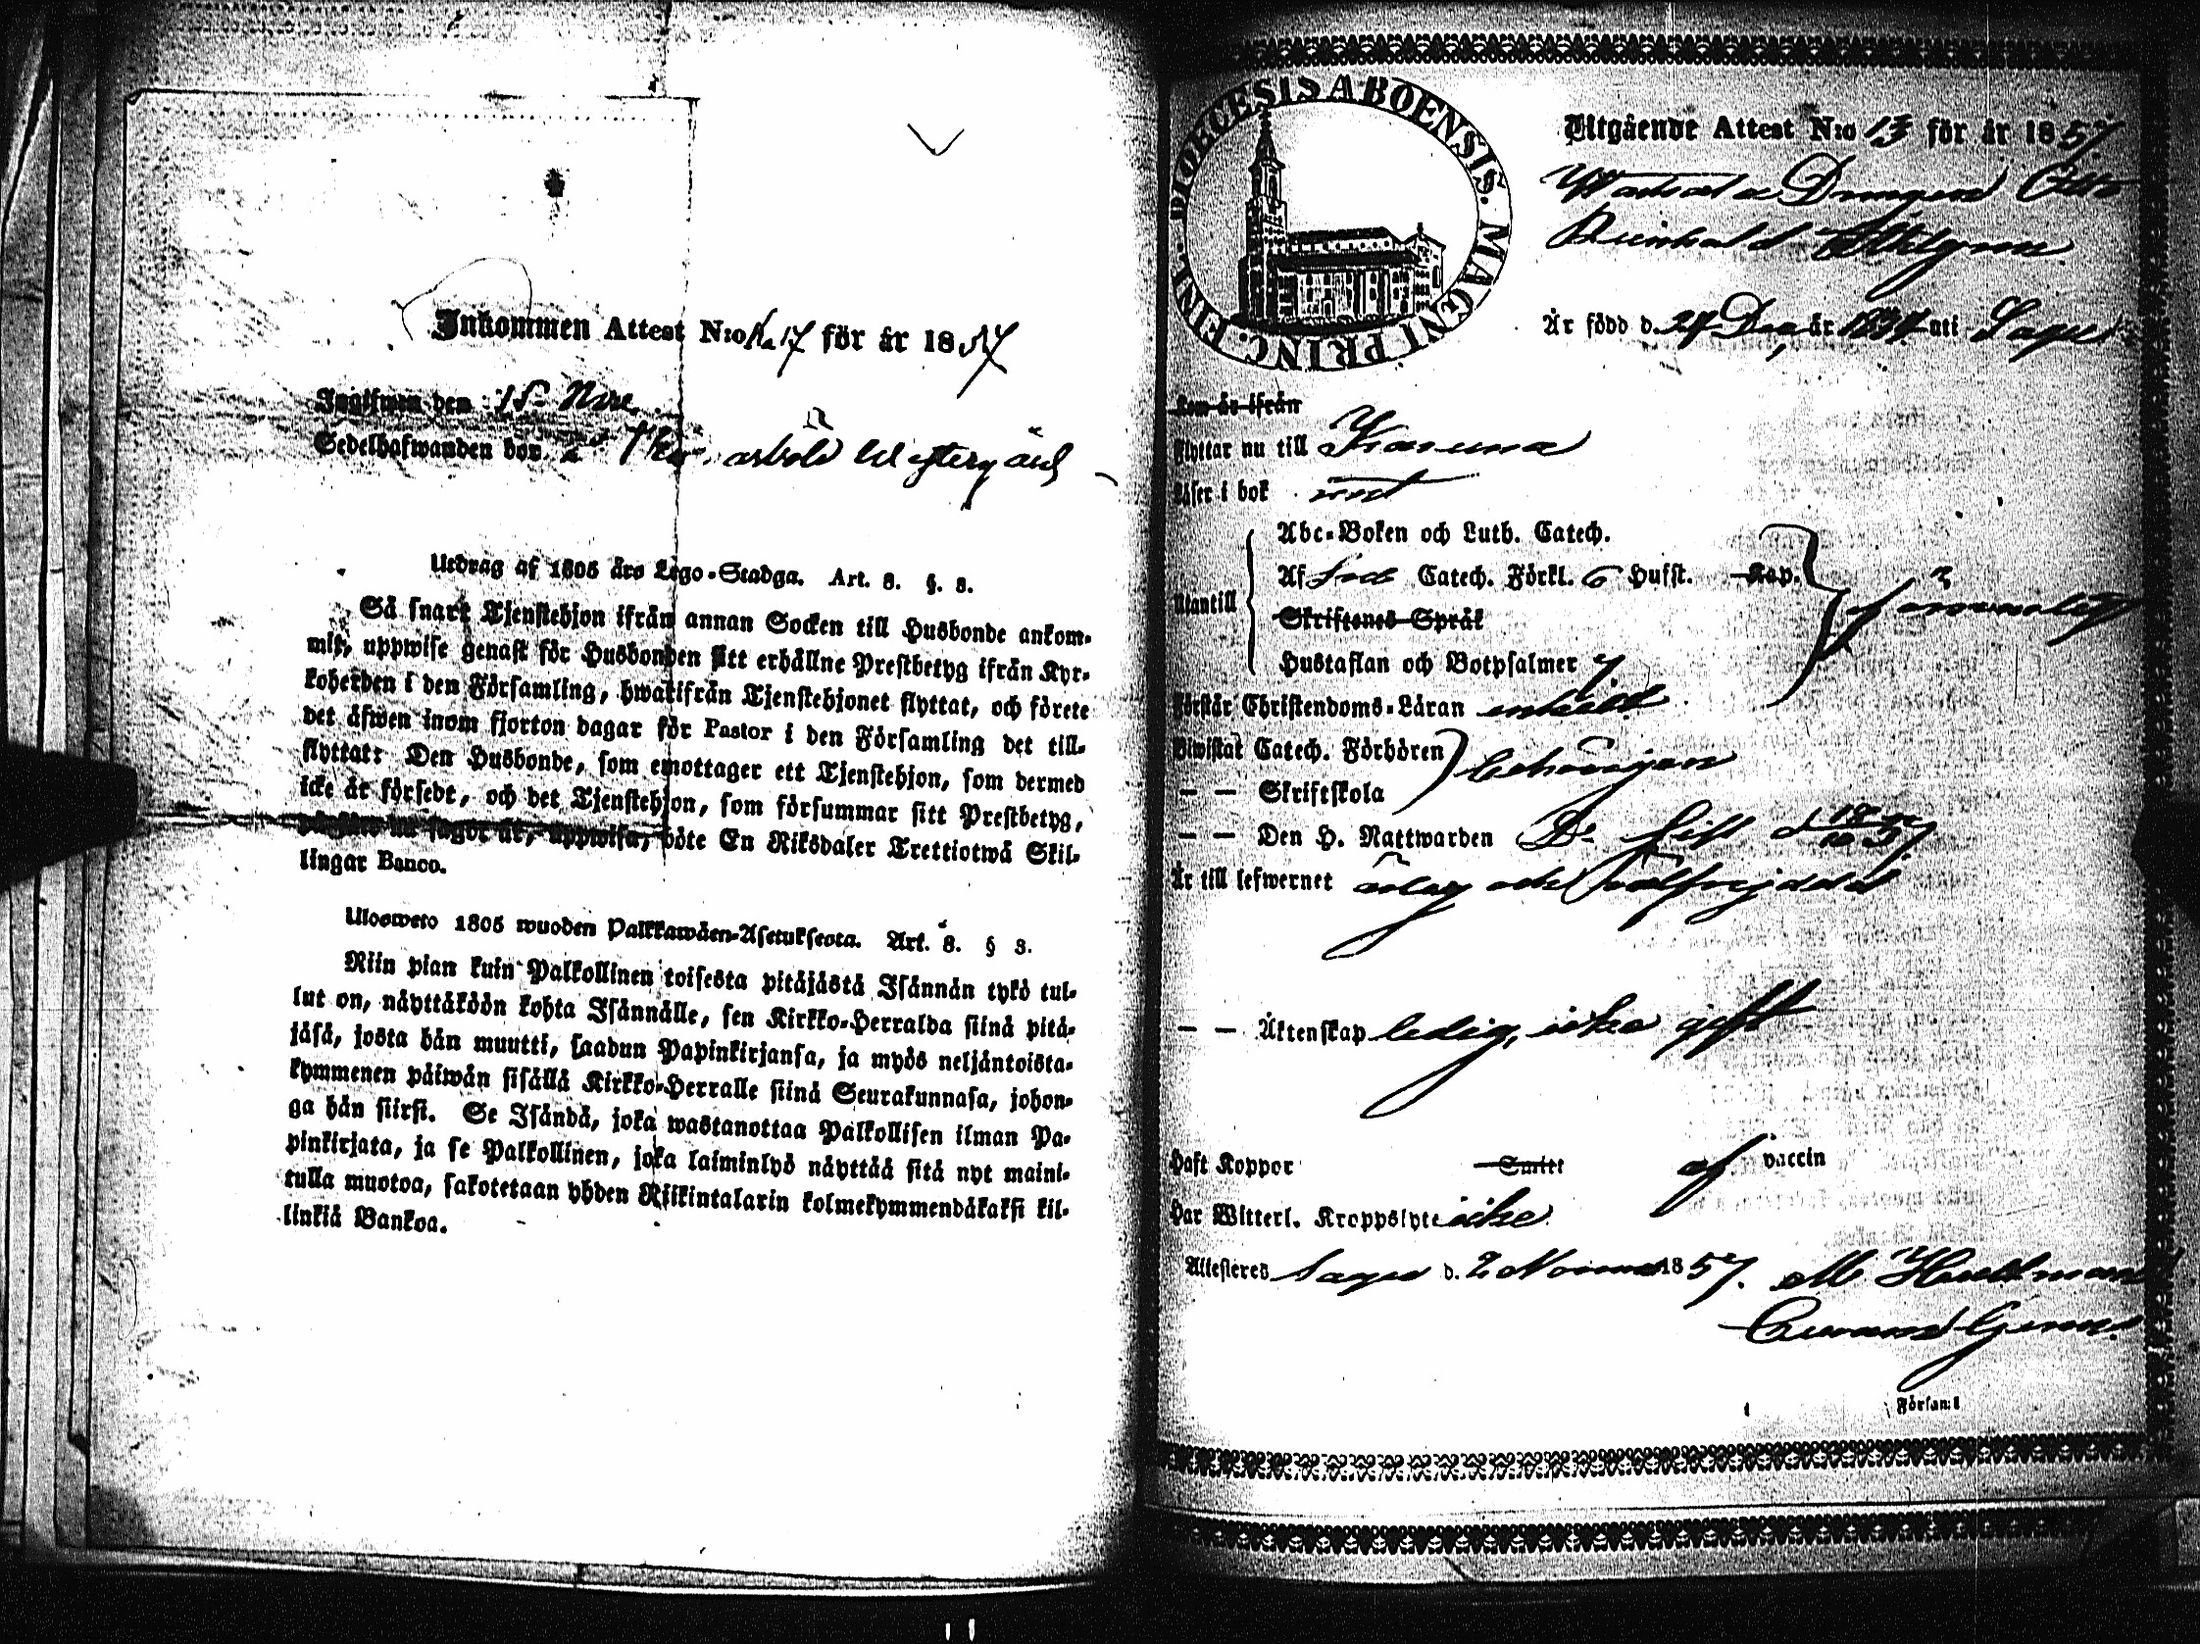 Inkommen Attest N:o 17 för år 1857
Ingifwen den 15 Nov.
Sedelhafwanden bor
Utdrag af 1805 års Lego-Stadga. Art. 8. §. 8.
Så snart Tjenstehjon ifrån annan Socken till Husbonde ankom-
mit, uppwise genast för Husbonden sitt erhållne Prestbetyg ifrån Kyr-
koherden i den Församling, hwarifrån Tjenstehjonet flyttat, och förete
det äfwen inom fjorton dagar för Pastor i den Församling det till-
flyttat: Den Husbonde, som emottager ett Tjenstehjon, som dermed
icke är försedt, och det Tjenstehjon, som försummar sitt Prestbetyg,
på sätt nu sagdt är, uppwisa, böte En Riksdaler Trettiotwå Skil-
lingar Banco.
Ulosweto 1805 wuoden Palkkawäen-Asetuksesta. Art. 8. § 8.
Niin pian kuin Palkollinen toisesta pitäjästä Isännän tykö tul-
lut on, näyttäköön kohta Isännälle, sen Kirkko-Herralda siinä pitä-
jäsä, josta hän muutti, saadun Papinkirjansa, ja myös neljäntoista-
kymmenen päiwän sisällä Kirkko-Herralle siinä Seurakunnasa, johon-
ga hän siirsi. Se Isändä, joka wastanottaa Palkollisen ilman Pa-
pinkirjata, ja se Palkollinen, joka laiminlyö näyttää sitä nyt maini-
tulla muotoa, sakotetaan yhden Riikintalarin kolmekymmendäkaksi kil-
linkiä Bankoa.
DIOECESIS ABOENSIS. MAGNI PRINC. FINL.
Utgående Attest N:o 13 för år 1857.
Drängen Otto
Reinhold
Är född d. 27 Dec, år 1837 uti Sagu
Kom år ifrån
Flyttar nu till Karuna
Läser i bok
Abc-Boken och Luth. Catech.
Af Catech. Förkl. 6 Husst. Kap.
Utantill
Skriftenes Språk
Hustaflan och Botpsalmer
Förstår Christendoms-Läran enkelt
Biwistat Catech. Förhören behörigen
— — Skriftskola
— — Den H. Nattwarden sist d 18/10 57.
Är till lefwernet ärlig och wälfrejdad
— — Äktenskap ledig, icke gift
Haft Koppor Smitt af vaccin
Har Witterl. Kroppslyte icke
Attesteras Sagu d. 2 Novemb 1857. M Hultman
Församl